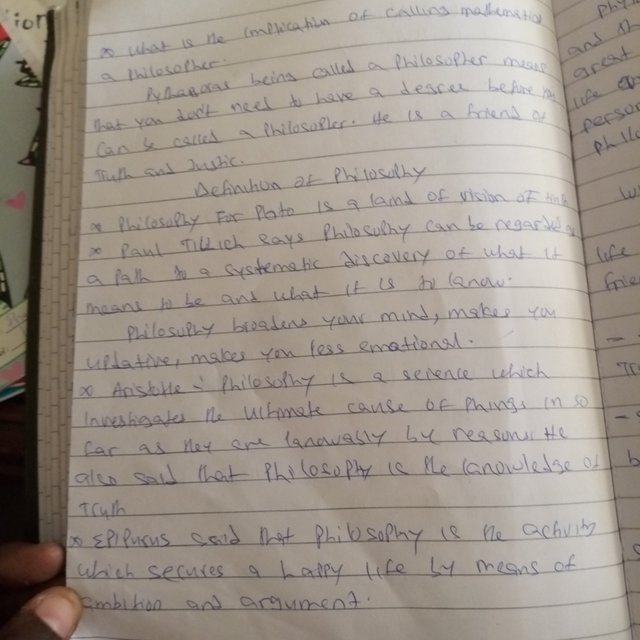 * What is the implication of calling mathematical
a Philosopher.
Pythagoras being called a Philosopher means
that you don't need to have a degree before
can be called a Philosopher. He is a friend of
Truth and Justic.
Definition of Philosophy
* Philosophy For Plato is a kind of vision of
* Paul Tillich says Philosophy can be regarded
a Path to a systematic discovery of what it
means to be and what it is to know.
Philosophy broadens your mind, makes you
updative, makes you less emotional.
* Aristotle: Philosophy is a science which
investigates the ultimate cause of things in so
far as they are knowably by reasons. He
also said that Philosophy is the knowledge of
Truth
* Epipurus said that Philosophy is the activity
which secures a happy life by means of
ambition and argument.